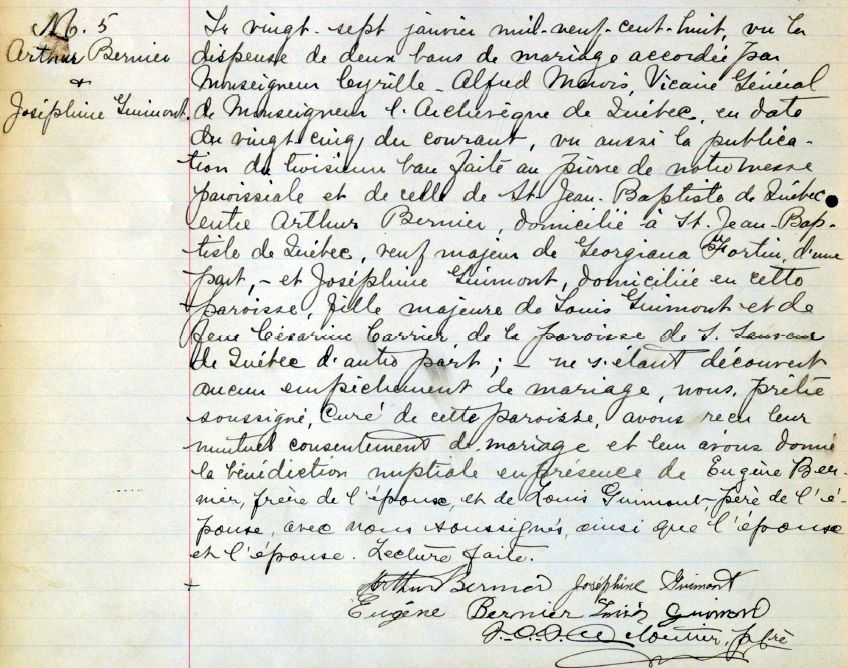 M. 5
Arthur Bernier
+
Joséphine Guimont.
Le vingt-sept janvier mil-neuf-cent-huit, vu la
dispense de deux bans de mariage accordée par
Monseigneur Cyrille-Alfred Marois, Vicaire Général
de Monseigneur l'Archevêque de Québec, en date
du vingt-cinq du courant, vu aussi la publica-
tion du troisième ban faite au prône de notre messe
paroissiale et de celle de St. Jean-Baptiste de Québec
entre Arthur Bernier, domicilié à St. Jean-Bap-
tiste de Québec, veuf majeur de Georgiana Fortin, d'une
part, - et Joséphine Guimont, domiciliée en cette
paroisse, fille majeure de Louis Guimont et de
feue Césarine Carrier, de la paroisse de S. Sauveur
de Québec d'autre part; - ne s'étant découvert
aucun empêchement de mariage, nous, prêtre
soussigné, Curé de cette paroisse, avons reçu leur
mutuel consentement de mariage et leur avons donné
la bénédiction nuptiale en présence de Eugène Ber-
nier, frère de l'épouse, et de Louis Guimont, père de l'é-
pouse, avec nous soussignés, ainsi que l'épouse
et l'épouse. Lecture faite.
+ Arthur Bernier Joséphine Guimont
Eugène Bernier Louis Guimont
Cloutier, Ptre